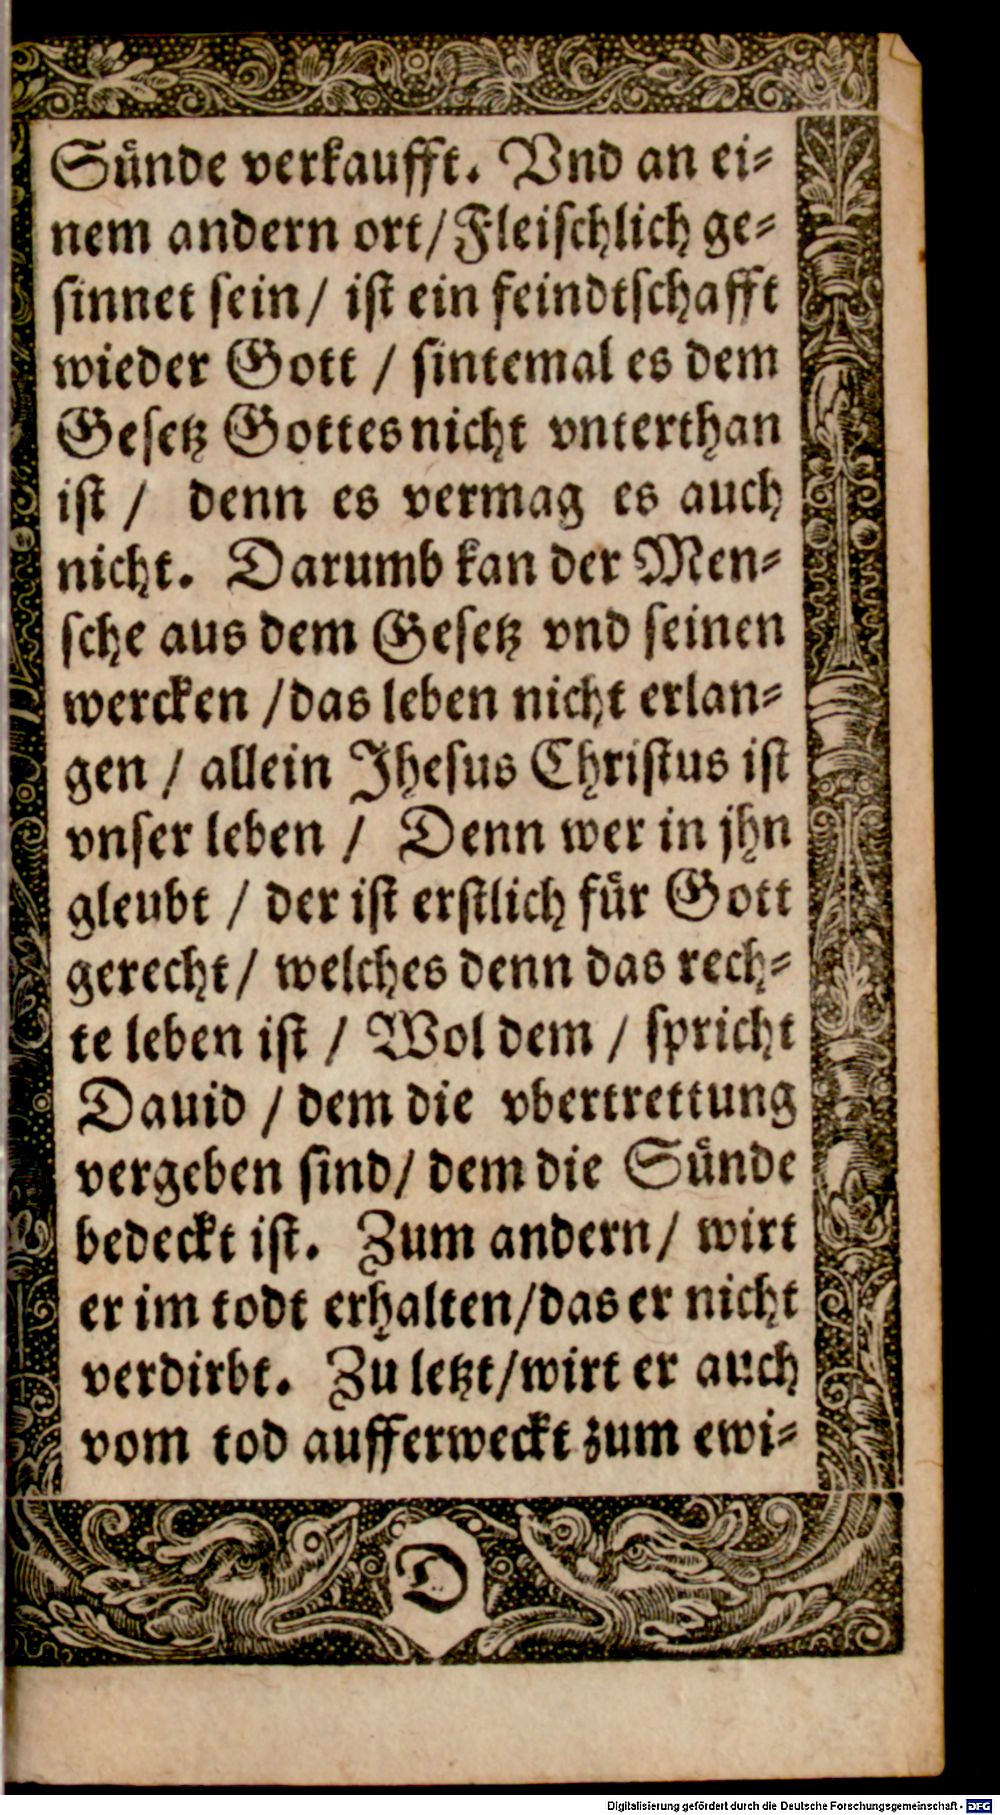 Sünde verkaufft. Vnd an ei⸗
nem andern ort/ Fleischlich ge⸗
sinnet sein/ ist ein feindtschafft
wieder Gott / sintemal es dem
Gesetz Gottes nicht vnterthan
ist / denn es vermag es auch
nicht. Darumb kan der Men⸗
sche aus dem Gesetz vnd seinen
wercken /das leben nicht erlan⸗
gen / allein Jhesus Christus ist
vnser leben / Denn wer in jhn
gleubt / der ist erstlich für Gott
gerecht/ welches denn das rech⸗
te leben ist / Wol dem / spricht
Dauid / dem die vbertrettung
vergeben sind/ dem die Sünde
bedeckt ist. Zum andern/ wirt
er im todt erhalten/das er nicht
verdirbt. Zu letzt/wirt er auch
vom tod aufferweckt zum ewi⸗
D
Digitalisierung gefördert durch die Deutsche Forschungsgemeinschaft - DFG